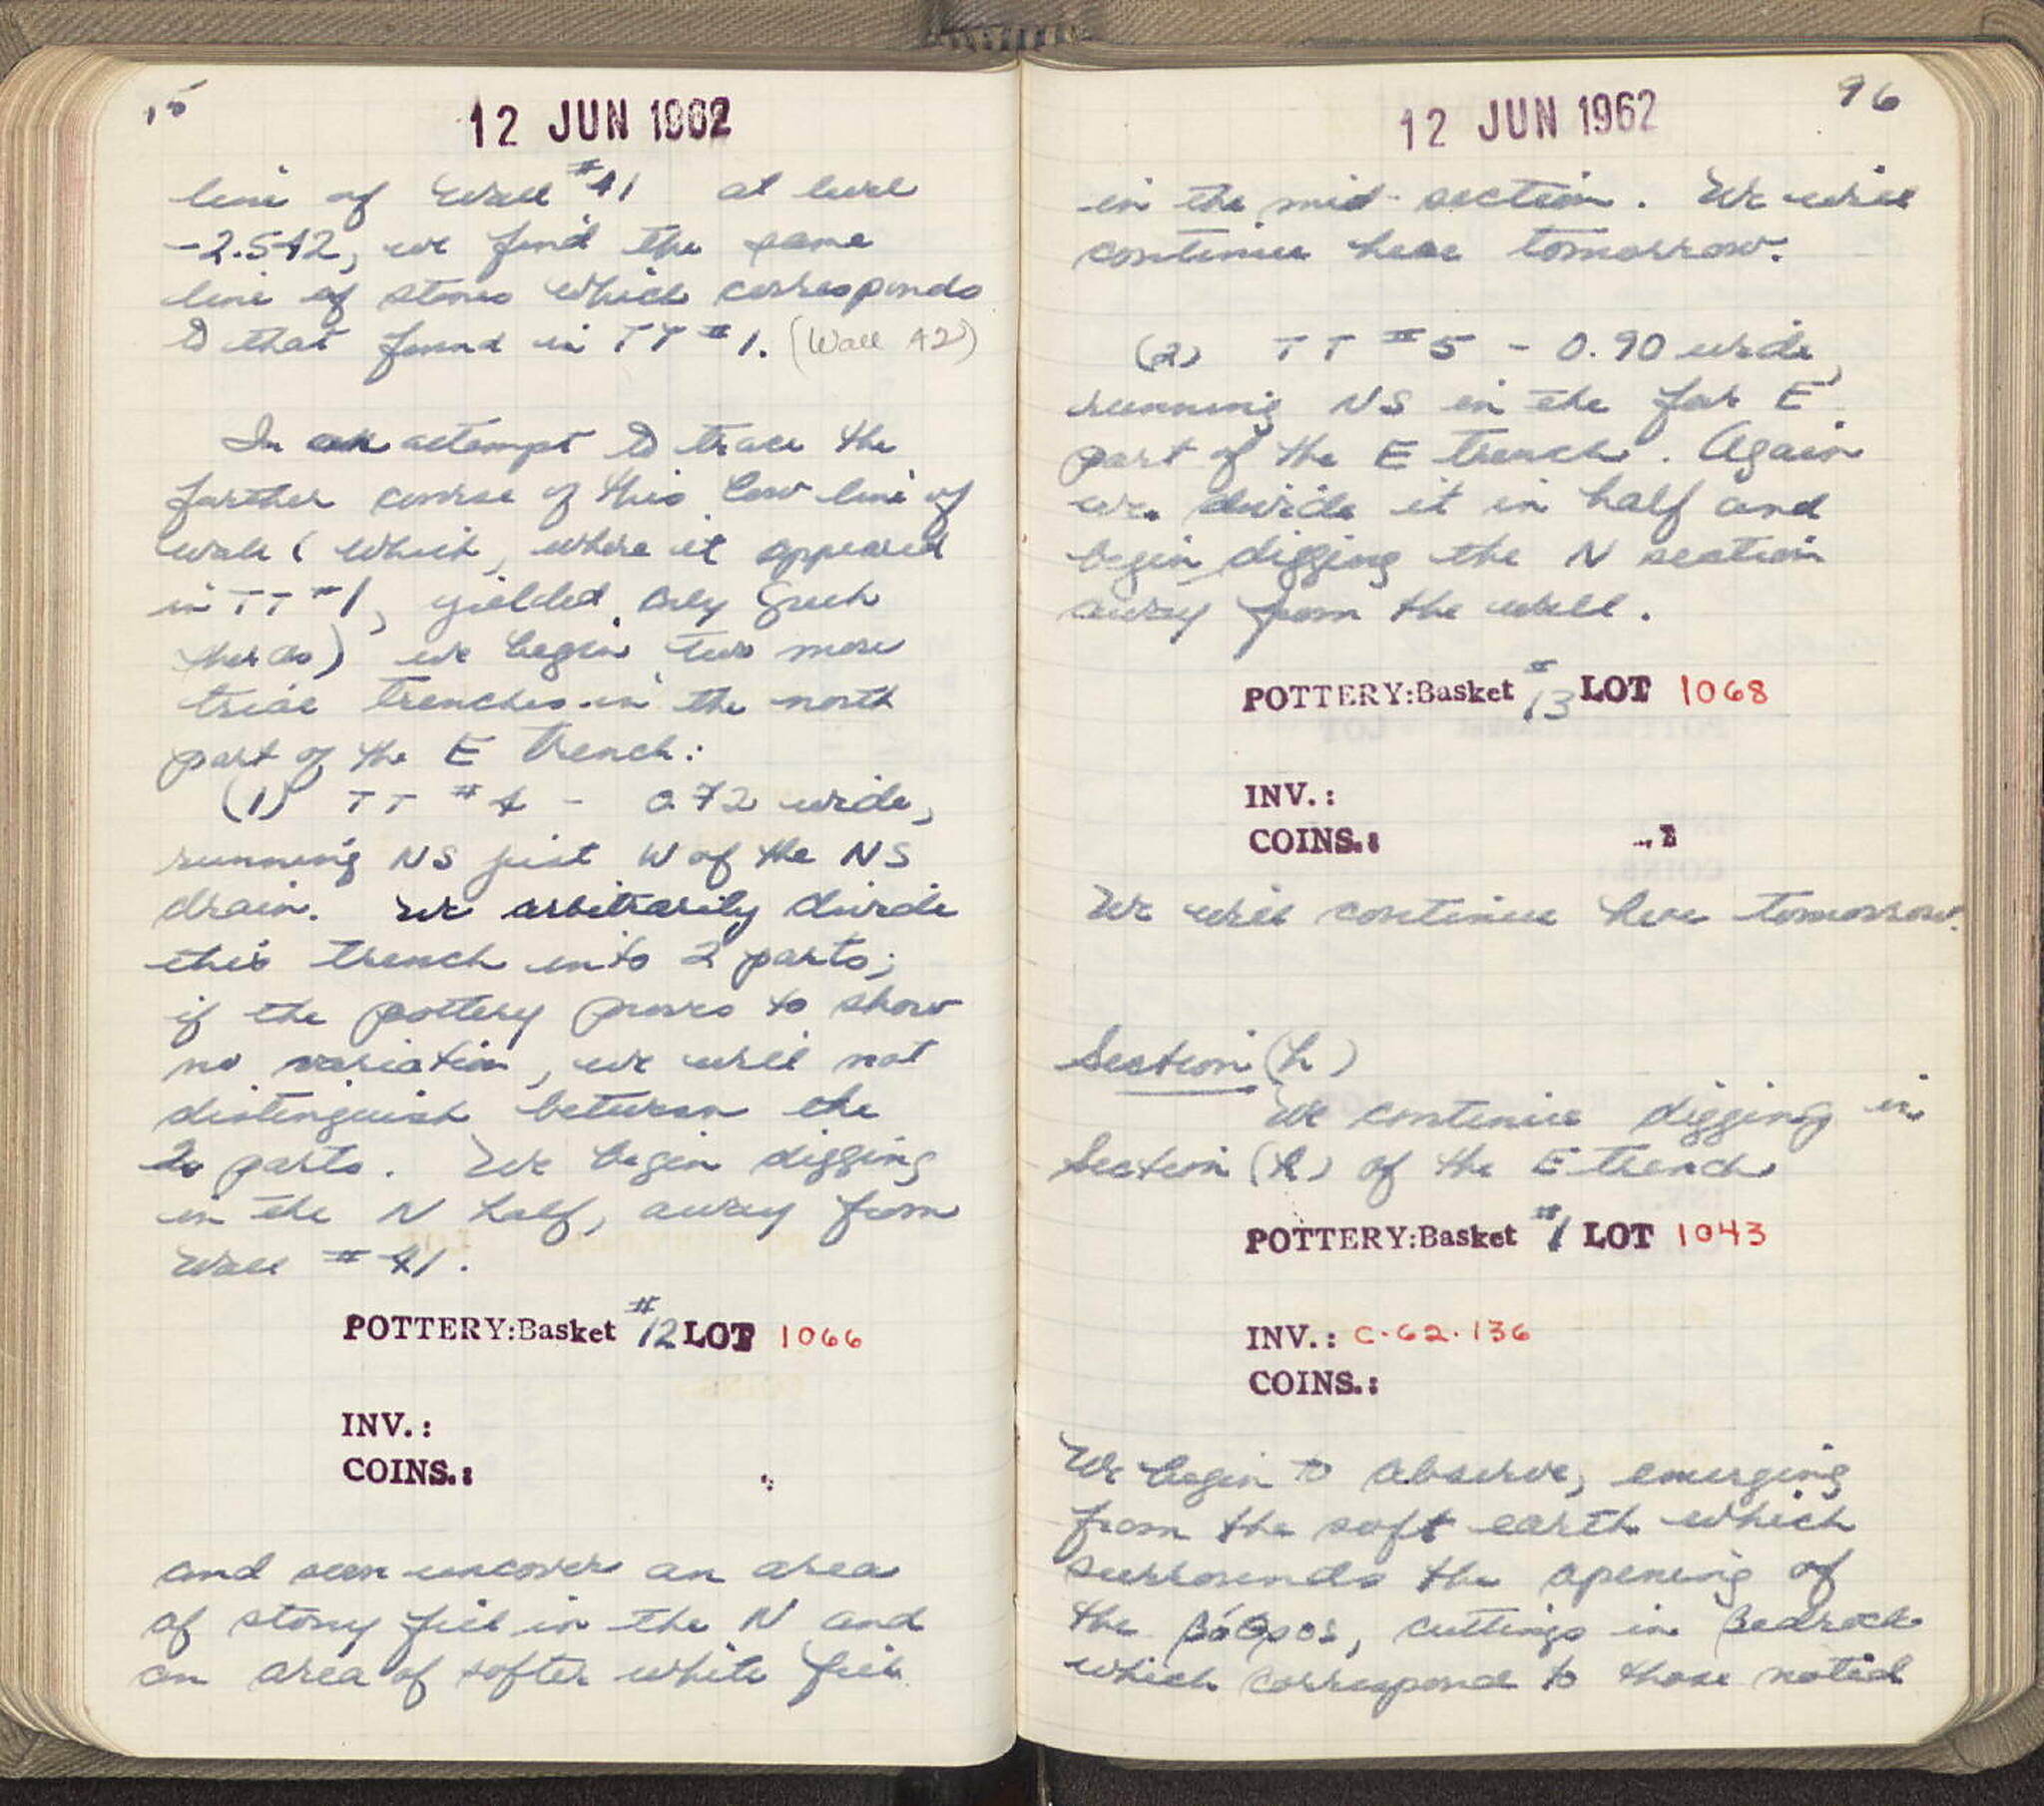 15
12 JUN 1962
line of Wall #41 at level
-2.542, we find the same
line of stones which corresponds
to that found in TT #1. (Wall 42)
In an attempt to trace the
farther course of this low line of
wall (which, where it appeared
in TT #1, yielded only Greek
sherds) we begin two more
trial trenches in the north
part of the E trench:
(1) TT #4 - 0.72 wide,
running NS just W of the NS
drain. We arbitrarily divide
this trench into 2 parts;
if the pottery proves to show
no variation, we will not
distinguish between the
2 parts. We begin digging
in the N half, away from
Wall #41.
POTTERY:Basket #12 LOT 1066
INV.:
COINS.:
and soon uncover an area
of stony fill in the N and
an area of softer white fill
96
12 JUN 1962
in the mid-section. We will
continue here tomorrow.
(2) TT #5 - 0.90 wide,
running NS in the far E
part of the E trench. Again
we divide it in half and
begin digging the N section
away from the wall.
POTTERY:Basket #13 LOT 1068
INV.:
COINS.:
We will continue here tomorrow.
Section (h)
We continue digging in
Section (h) of the E trench
POTTERY:Basket #1 LOT 1043
INV.: C·62·136
COINS.:
We begin to observe, emerging
from the soft earth which
surrounds the opening of
the βόθρος, cuttings in bedrock
which correspond to those noted